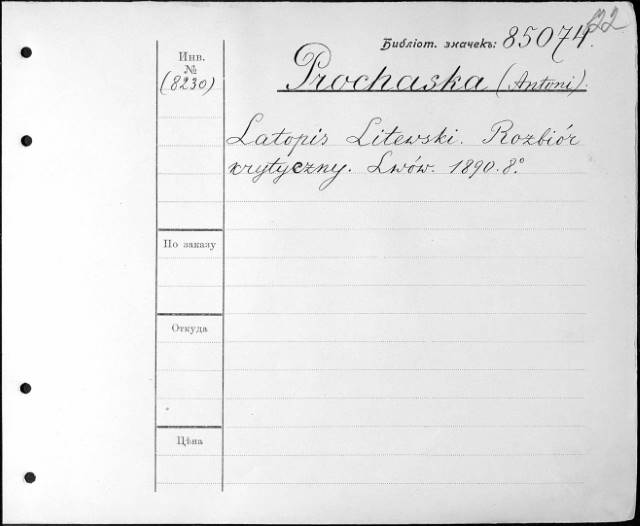 622
Библіот. значекъ: 85074.
Инв.
№
(8230)
Prochaska (Antoni).
Latopis Litewski. Rozbiór
krytyczny. Lwów. 1890. 8.º
По заказу
Откуда
Цѣна